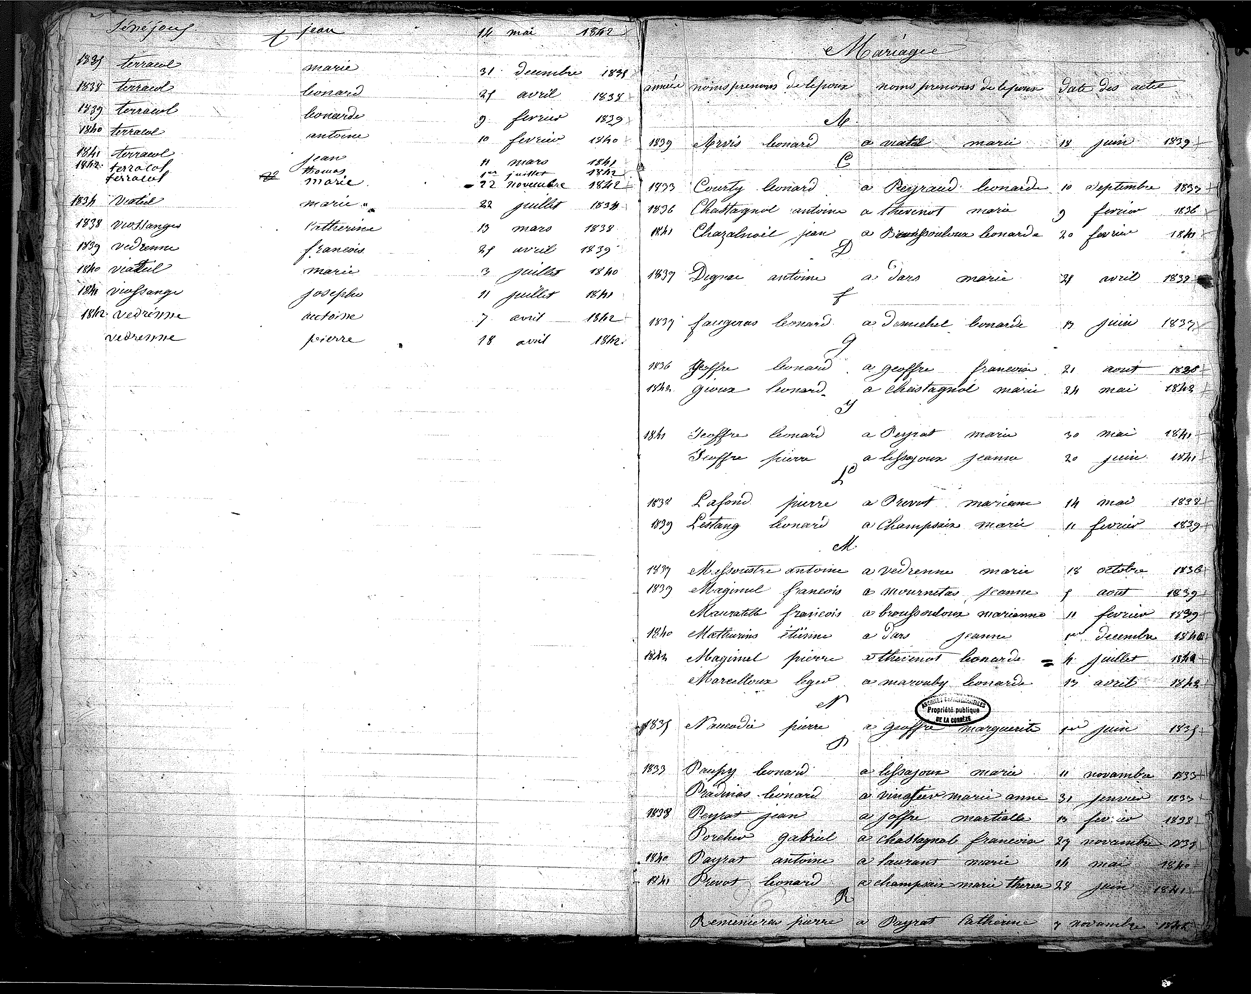 jean 14 mai 1842
1835 terracol marie 31 decembre 1835
1838 terracol léonard 25 avril 1838
1839 terracol léonarde 9 fevrier 1839
1840 terracol antoine 10 fevrier 1840
1841 terracol jean 11 mars 1841
1842 terracol thomas 1er juillet 1842
terracol marie 22 novembre 1842
1834 viateil marie 22 juillet 1834
1838 viossanges Catherine 13 mars 1838
1839 vedrenne francois 25 avril 1839
1840 viateil marie 3 juillet 1840
1841 viossange josephe 11 juillet 1841
1842 vedrenne antoine 7 avril 1842
vedrenne pierre 18 avril 1842
Mariages
année noms prenoms de lepoux noms prenoms de lepouse date des actes
A
1839 Arvis léonard a viatel marie 18 juin 1839
C
1833 Courty léonard a Peyraud léonarde 10 septembre 1833
1836 Chastagnol antoine a thevenot marie 9 fevrier 1836
1841 Chazalnoil jean a Broussouloux léonarde 20 fevrier 1841
D
1837 Degnac antoine a dars marie 21 avril 1837
f
1837 faugeras léonard a demichel léonarde 13 juin 1837
g
1836 geoffre léonard a geoffre francoise 21 aout 1836
1842 gioux léonard a chastagnol marie 24 mai 1842
J
1841 Jeoffre léonard a Peyrat marie 30 mai 1841
Jeoffre pierre a lessajoux jeanne 20 juin 1841
L
1838 Lafond pierre a Prevot mariane 14 mai 1838
1839 Lestang léonard a champseix marie 11 fevrier 1839
M
Messoustre antoine a vedrenne marie 18 octobre 1836
1839 Maginel francois a mournetas jeanne 5 aout 1839
Mauratille françois a broussouloux marianne 11 fevrier 1839
1840 Mathurins étienne a dars jeanne 1er decembre 1840
1842 Maginel pierre a thevenot léonarde 4 juillet 1842
Marcilloux leger a marouby léonarde 13 avril 1842
N
1835 Naucodie pierre a geoffre marguerite 1er juin 1835
ARCHIVES DÉPARTEMENTALES
Propriété publique
DE LA CORRÈZE
P
1833 Paupy léonard a lessajoux marie 11 novembre 1833
Pradinas léonard a vinatier marie anne 31 janvier 1833
1838 Peyrat jean a joffre martialle 13 fevrier 1838
Porcher gabriel a chastagnol francoise 27 novembre
1840 Payrat antoine a laurant marie 14 mai 1840
1841 Prevot léonard a champseix marie therese 28 juin 1841
R
Remenieras pierre a Peyrat Catherine 7 novembre